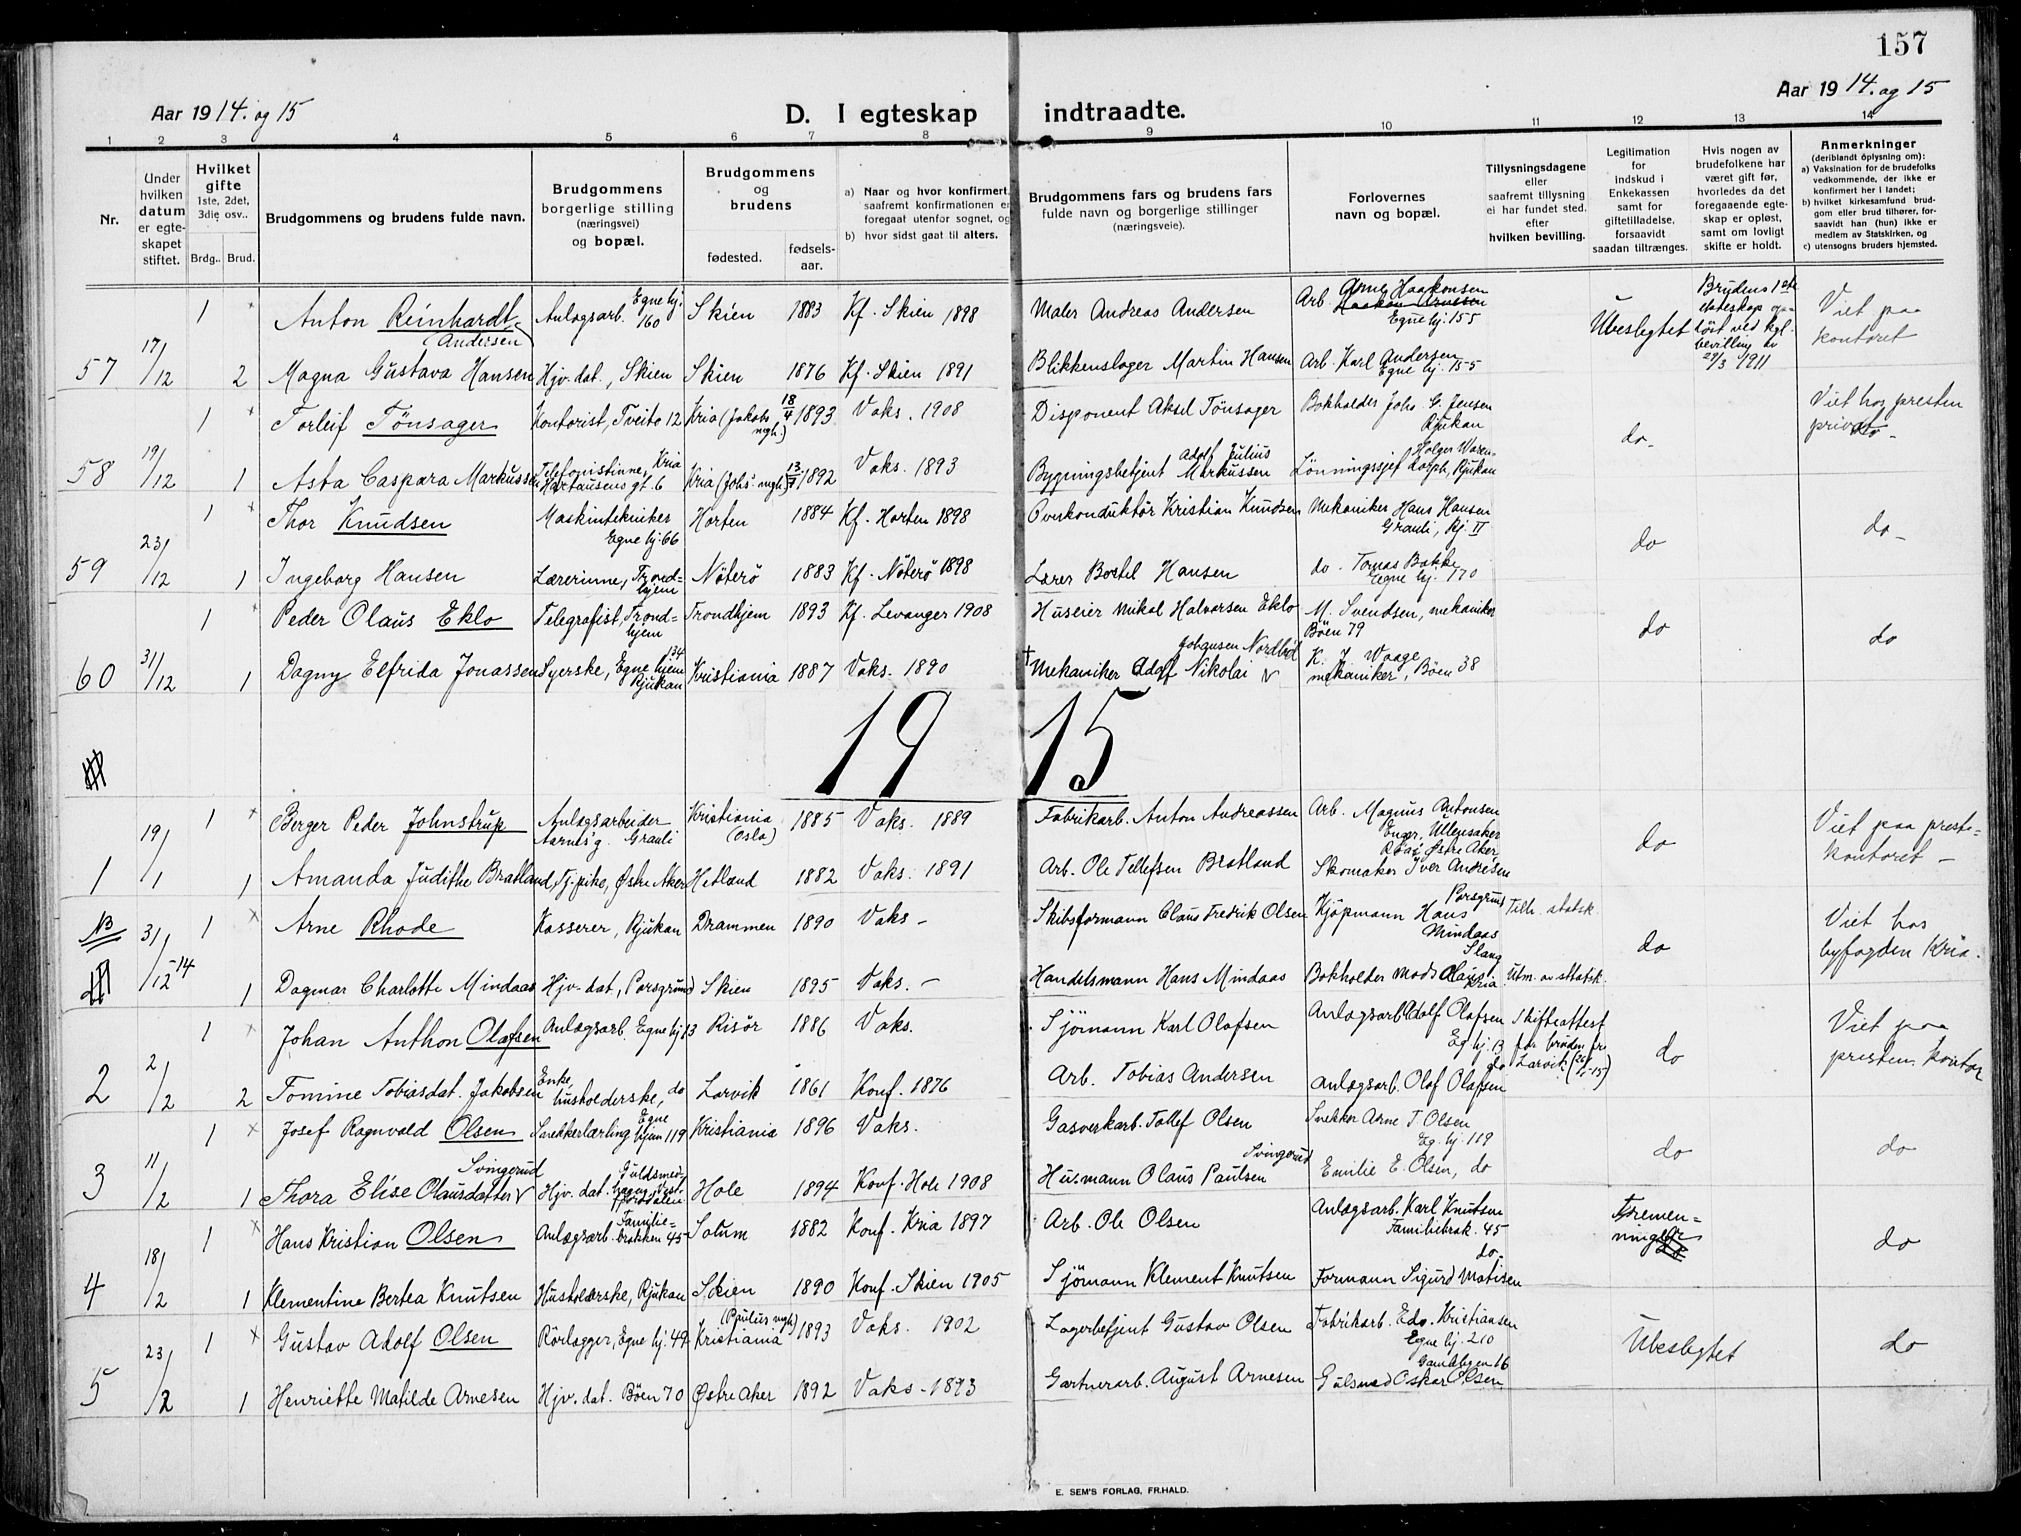 157
Aar 1914. og 15
D. I egteskap indtraadte.
Aar 1914. og 15
1 2 3 4 5 6 7 8 9 10 11 12 13 14
Nr.
Under hvilken datum er egteskapet stiftet.
Hvilket gifte 1ste, 2det, 3die osv..
Brdg.. Brud.
Brudgommens og brudens fulde navn.
Brudgommens borgerlige stilling (næringsvei) og bopæl.
Brudgommens og brudens
fødested.
fødsels-aar.
a) Naar og hvor konfirmert, saafremt konfirmationen er foregaat utenfor sognet, og
b) hvor sidst gaat til alters.
Brudgommens fars og brudens fars fulde navn og borgerlige stillinger (næringsveie).
Forlovernes navn og bopæl.
Tillysningsdagene eller saafremt tillysning ei har fundet sted. efter hvilken bevilling.
Legitimation for indskud i Enkekassen samt for giftetilladelse, forsaavidt saadan tiltrænges.
Hvis nogen av brudefolkene har været gift før, hvorledes da det foregaaende egteskap er opløst, samt om lovligt skifte er holdt.
Anmerkninger (deriblandt oplysning om):
a) Vaksination for de brudefolks vedkommende, der ikke er konfirmert her i landet;
b) hvilket kirkesamfund brudgom eller brud tilhører, forsaavidt han (hun) ikke er medlem av Statskirken, og
c) utensogns bruders hjemsted.
1 Anton Reinhardt Andersen Anlægsarb. Egne hj. 160 Skien 1883 Kf. Skien 1898 Maler Andreas Andersen Arb. Arne Haakonsen Haakon Arnesen Egne hj. 155 Ubeslegtet Brudens 1ste ekteskap opløst ved kgl. bevilling av 29/3 1911 Viet paa kontoret
57 17/12 2 Magna Gustava Hansen Hjv. dat., Skien Skien 1876 Kf. Skien 1891 Blikkenslager Martin Hansen Arb. Karl Andersen Egne hj. 155
1 Torleif Tönsager Kontorist, Tveito 12 Kria (Jakobs mgh.) 18/4 1893 Vaks. 1908 Disponent Aksel Tönsager Bokholder Johs. C. Jensen Rjukan do- Viet hos presten privat do-
58 19/12 1 Asta Caspara Markussen Telefonistinne, Kria gt. 6 Kria (Johs. mgh.) 1892 Vaks. 1893 Bygningsbetjent Adolf Julius Markussen Lönningssjef Holger Warendorph, Rjukan
1 Thor Knudsen Maskintekniker Egne hj. 66 Horten 1884 Kf. Horten 1898 Overkonduktör Kristian Knudsen Mekaniker Hans Hansen Graali, Rj. II do do-
59 23/12 1 Ingeborg Hansen Lærerinne, Trondhjem Nöterö 1883 Kf. Nöterö 1898 Lærer Bertel Hansen do. Tomas Bakke Egne hj. 170
1 Peder Olaus Eklo Telegrafist, Trondhjem Trondhjem 1893 Kf. Levanger 1908 Huseier Mikal Halvorsen Eklo M. Svendsen, mekaniker Böen 79 do do
60 31/12 1 Dagny Elfrida Jonassen Syerske, Egne hjem 134 Rjukan Kristiania 1887 Vaks. 1890 † Mekaniker Adolf Nikolai Johansen K. J. Waage mekaniker, Böen 38
1915
1 Berger Peder Johnstrup Anlægsarbeider Aarnes g. Graali Kristiania (Oslo) 1885 Vaks. 1889 Fabrikarb. Anton Andreassen Arb. Magnus Antonsen Enger, Ullensaker do Viet paa prestekontoret -
1 19/1 1 Amanda Judithe Bratland, Tj. pike, Østre Aker Hetland 1882 Vaks. 1891 Arb. Ole Tellefsen Bratland Skomaker Iver Andresen Østre Aker
NB 31/12-14 1 Arne Rhode Kasserer, Rjukan Drammen 1890 Vaks - Skibsformann Claus Fredrik Olsen Kjöpmann Hans Mindaas Porsgrund Tilh. statsk. do Viet hos byfogden Kria.
1 Dagmar Charlotte Mindaas Hjv. dat, Porsgrund Skien 1895 Vaks. - Handelsmann Hans Mindaas Bokholder Mads Claus Kria Utm. av statsk.
1 Johan Anthon Olafsen Anlægsarb. Egne hj. 13 Risör 1886 Vaks. Sjömann Karl Olafsen Anlægsarb. Adolf Olafsen Eg. hj. 13 Skifteattest for bruden fra Larvik do Viet paa presten. kontor
2 2/2 2 Tomine Tobiasdat. Jakobsen Enke, husholderske, do Larvik 1861 Konf. 1876 Arb. Tobias Andersen Anlægsarb. Olaf Olafsen do
1 Josef Ragnvald Olsen Snekkerlærling Egne hjem 119 Kristiania 1896 Vaks. Gasverkarb. Tollef Olsen Snekker Arne T. Olsen Eg. hj. 119 do do
3 11/2 1 Thora Elise Olausdatter Svingerud Hjv. dat. Hole 1894 Konf. Hole 1908 Husmann Olaus Paulsen Svingerud Emilie E. Olsen, do
1 Hans Kristian Olsen Anlægsarb. Familiebrakken 45 Solum 1882 Konf. Kria 1897 Arb. Ole Olsen Anlægsarb. Karl Knutsen Familiebrak. 45 do
4 18/2 1 Klementine Bertea Knutsen Husholderske, Rjukan Skien 1890 Konf. Skien 1905 Sjömann Klement Knutsen Formann Sigurd Matisen do
1 Gustav Adolf Olsen Rörlegger, Egne hj. 49 Kristiania (Paulus mgh.) 1893 Vaks. 1902 Lagerbetjent Gustav Olsen Fabrikarb. Edv. Kristiansen Egne hj. 210 Ubeslegtet do
5 23/2 1 Henriette Matilde Arnesen Hjv. dat. Böen 70 Østre Aker 1892 Vaks. 1893 Gartnerarb. August Arnesen Gulsmed Oskar Olsen
E. SEM'S FORLAG, FR.HALD.